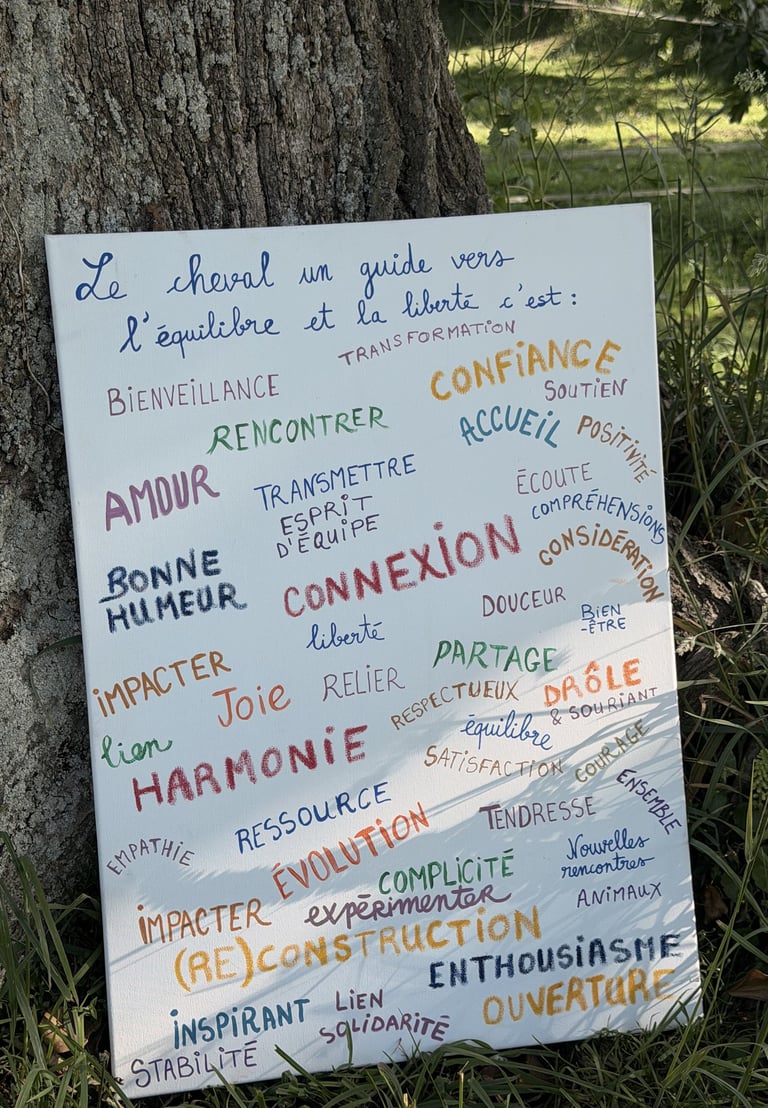 Le cheval un guide vers
l'équilibre et la liberté c'est :
TRANSFORMATION
BIENVEILLANCE
CONFIANCE
SOUTIEN
RENCONTRER
ACCUEIL
POSITIVITÉ
AMOUR
TRANSMETTRE
ÉCOUTE
ESPRIT
D'ÉQUIPE
COMPRÉHENSIONS
CONSIDÉRATION
BONNE
HUMEUR
CONNEXION
DOUCEUR
BIEN
-ÊTRE
liberté
PARTAGE
IMPACTER
Joie
RELIER
RESPECTUEUX
DRÔLE
& SOURIANT
lien
équilibre
HARMONIE
SATISFACTION
COURAGE
RESSOURCE
TENDRESSE
ENSEMBLE
EMPATHIE
ÉVOLUTION
Nouvelles
rencontres
COMPLICITÉ
ANIMAUX
IMPACTER
expérimenter
(RE)CONSTRUCTION
ENTHOUSIASME
INSPIRANT
LIEN
SOLIDARITÉ
OUVERTURE
STABILITÉ